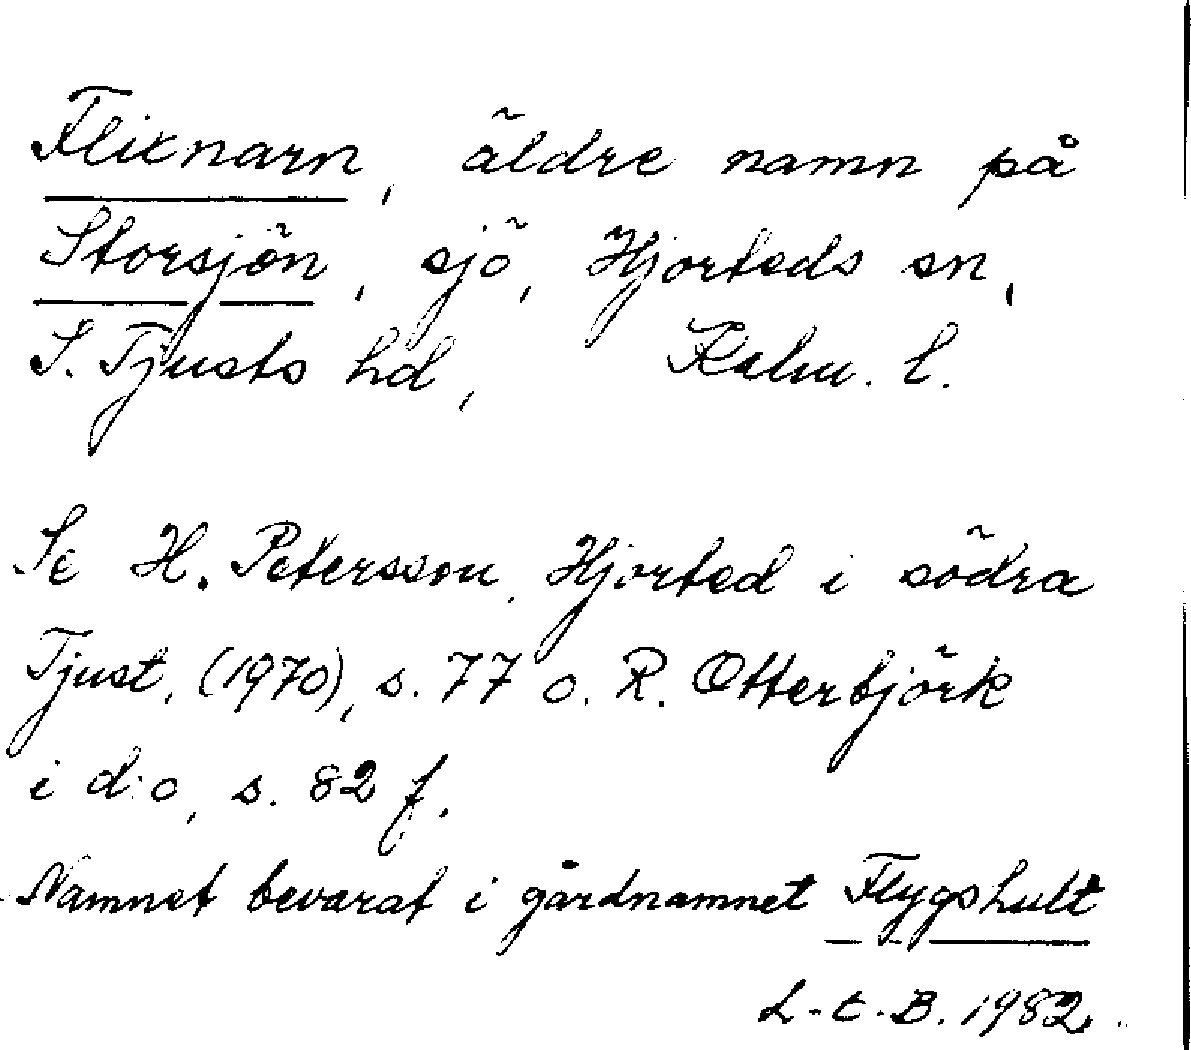 Flicnarn, äldre namn på
Storsjön, sjö, Hjorteds sn,
S. Tjusts hd, Kalm. l.
Se H. Petersson, Hjorted i södra
Tjust, (1970), s. 77 o. R. Otterbjörk
i d:o, s. 82 f.
Namnet bevarat i gårdnamnet Flygshult
L-t-B. 1982.